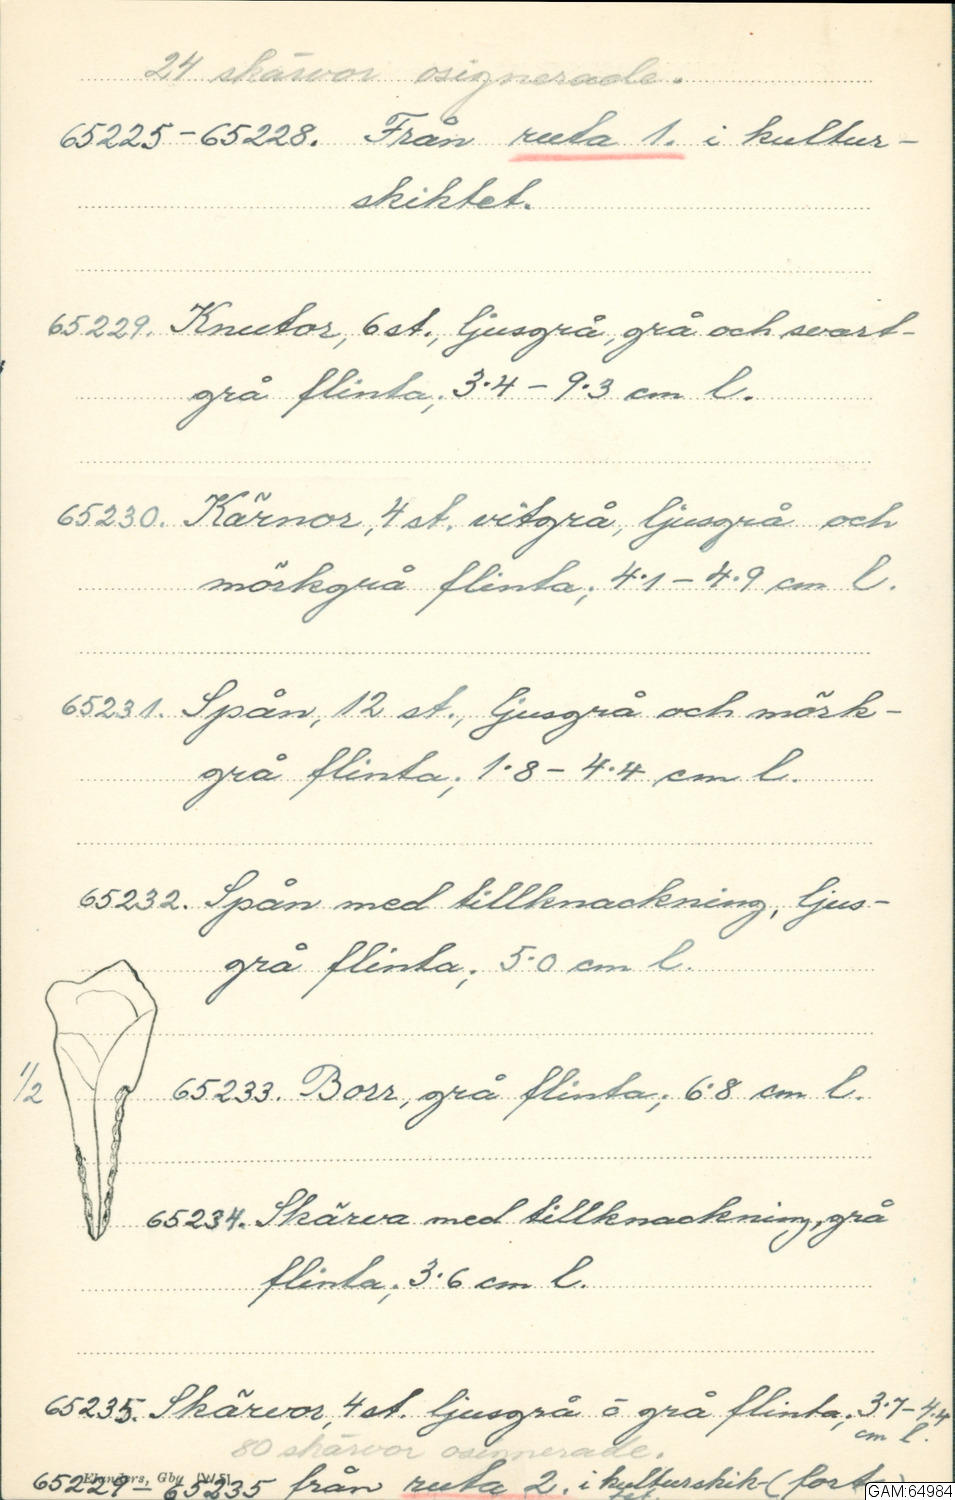 24 skärvor osignerade.
65225-65228. Från ruta 1. i kultur-
skiktet.
65229. Knutor, 6 st., ljusgrå, grå och svart-
grå flinta; 3.4 - 9.3 cm l.
65230. Kärnor, 4 st. vitgrå, ljusgrå och
mörkgrå flinta; 4.1 - 4.9 cm l.
65231. Spån, 12 st., ljusgrå och mörk-
grå flinta; 1.8 - 4.4 cm l.
65232. Spån med tillknackning, ljus-
grå flinta; 5.0 cm l.
1/2
65233. Borr, grå flinta; 6.8 cm l.
65234. Skärva med tillknackning, grå
flinta; 3.6 cm l.
65235. Skärvor, 4 st. ljusgrå o grå flinta; 3.7-4.4
cm l.
80 skärvor osignerade.
Elanders, Gbg
65229 - 65235 från ruta 2. i kulturskik- (forts)
tet.
GAM:64984